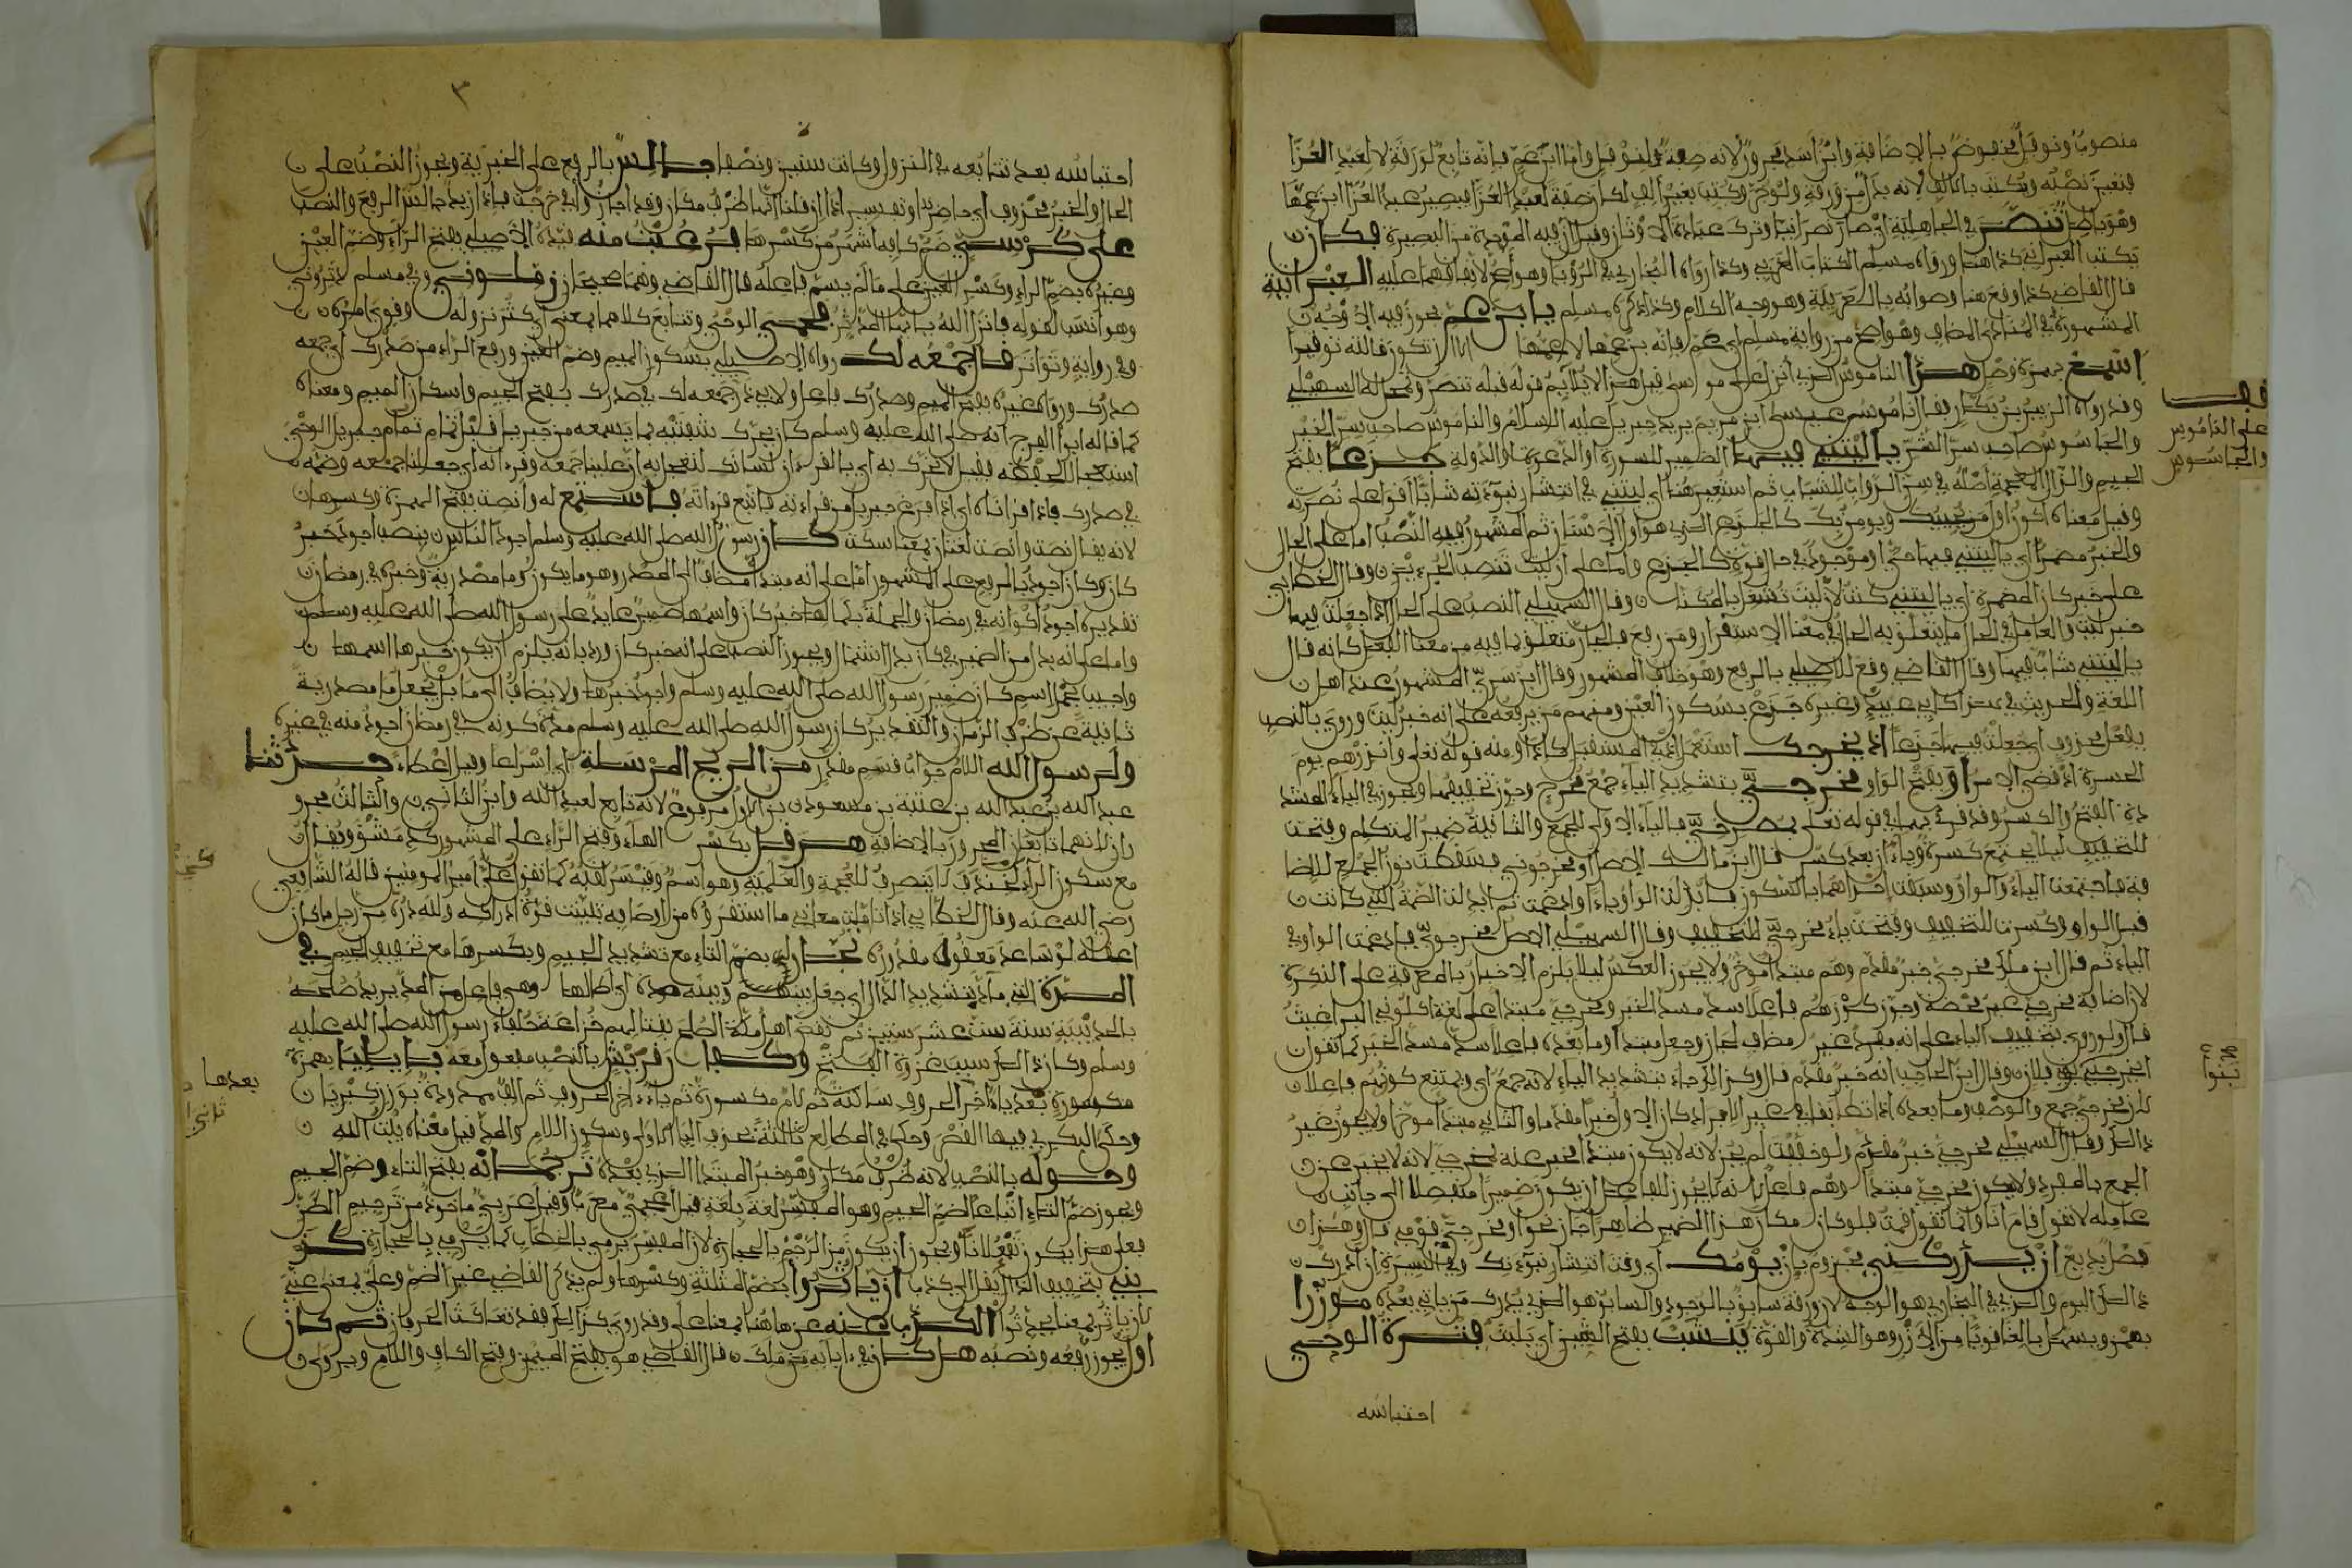 منصوبٌ ونوفل مخفوض بالاضافة وابن اسد مجرور لانه صفة لنوفل واما ابن عم فانه تابع لورقة لا لعبد العزا
فتعين نصبه ويكتب بالالف لانه بدل من ورقة ولو جر وكتب بغير الف لكان صفة لعبد العزا فيصير عبد العزا ابن عمها
وهو باطل تنصر في الجاهلية اي صار نصرانيا وترك عبادة الاوثان وقيل ان فيه الموحدة من البصيرة فكان
يكتب العبراني كذا هنا ورواه مسلم الكتاب العربي وكذا رواه البخاري في الرؤيا وهو اصح لاتفاقهما عليه العبرانية
قال القاضي كذا وقع هنا وصوابه بالعربية وهو وجه الكلام وكذا ذكره مسلم يا ابن عم يجوز فيه الاوجه
المشهورة في المنادى المضاف وهو اصح من رواية مسلم اي عم فانه بن عمها لا عمها الا ان تكون قالته توقيرا
اسمع بهمزة وصل هذا الناموس الذي انزل على موسى قيل هذا لا يلائم قوله قبله تنصر ونحى له السهيلي
وقد رواه الزبير بن بكار فقال ناموس عيسى ابن مريم يريد جبريل عليه السلام والناموس صاحب سر الخير
والجاسوس صاحب سر الشر يا ليتني فيها الضمير للسورة او الدعوة او الدولة جذعا بفتح
الجيم والذال المعجمة اصله في سن الدواب للشباب ثم استعير هنا اي ليتني في انتشار نبوءته شابا اقوا على نصرته
وقيل معناه اكون اول من يجيبك ويومن بك كالجذع الذي هو اول الاسنان ثم المشهور فيه النصب اما على الحال
والخبر مضمر اي يا ليتني فيها حي او موجود في حال فوة كالجذع واما على ان ليت تنصب الجزءين وقال الخطابي
على خبر كان المضمرة اي يا ليتني كنت لان ليت تشغل بالمكنا وقال السهيلي النصب على الحال اذا جعلت فيها
خبر ليت والعامل في الحال ما يتعلق به الجار في معنا الاستقرار ومن رفع فالجار متعلق بما فيه من معنا الفعل كانه قال
يا ليتني شاب فيها وقال القاضي وقع للاصيلي بالرفع وهو خلاف المشهور وقال ابن سري المشهور عند اهل
اللغة والحديث كابي عبيد وغيره جذع بسكون العين ومنهم من يرفعه على انه خبر ليت وروي بالنصب
بفعل محذوف اي جعلت فيها جذعا اذ يخرجك استعمل اذ في المستقبل كاذا ومنه قوله تعلى وانذرهم يوم
الحسرة اذ قضي الامر او بفتح الواو مخرجي بتشديد الياء جمع مخرج ويجوز تخفيفها ويجوز في الياء المشد
دة الفتح والكسر وقد قرئ بهما في قوله تعلى بمصرخي فالياء الاولى للجمع والثانية ضمير المتكلم وفتحت
للتخفيف ليلا يجتمع كسرة وياءان بعد كسر قال ابن مالك الاصل اومخرجوني فسقطت نون الجمع للاضا
فة فاجتمعت الياء والواو وسبقت احداهما بالسكون فابدلت الواو ياء وادغمت ثم ابدلت الضمة التي كانت
قبل الواو وكسرت للتخفيف وفتحت ياء مخرجي للتخفيف وقال السهيلي الاصل مخرجوي فادغمت الواو في
الياء ثم قال ابن ملك مخرجي خبر مقدم وهم مبتدا موخر ولا يجوز العكس ليلا يلزم الاخبار بالمعرفة على النكرة
لان اضافة مخرجي غير محضة وجوز كون هم فاعلا سد مسد الخبر ومخرجي مبتدا على لغة اكلوني البراغيث
قال ولو روي بتخفيف الياء على انه مفرد غير مضاف لجاز وجعل مبتدا وما بعده فاعلا سد مسد الخبر كما تقول
امخرجي بنو فلان وقال ابن الحاجب انه خبر مقدم قال وكذا لو جاء بتشديد الياء لانه جمع اي ويمتنع كونهم فاعلا
لان مخرجي جمع والوصف وما بعده اذا تطابقا في غير الافراد كان الاول خبرا مقدما والثاني مبتدا موخرا ولا يجوز غير
ذلك وقال السهيلي مخرجي خبر مقدم ولو خففت لم يجز لانه لا يكون مبتدا مخبر عنه لمخرجي لانه لا يخبر عن
الجمع بالمفرد ولا يكون مخرجي مبتدا وهم فاعلا لانه لا يجوز للفاعل ان يكون ضميرا منفصلا الى جانب
عامله لا تقول قام انا وانما تقول قمت فلو كان مكان هذا الضمير ظاهرا جاز نحو اومخرجي قومي قال وهذا
فصل بديع ان يدركني مجزوم بان يومك اي وقت انتشار نبوءتك وفي السيرة ان ادرك
ذلك اليوم والذي في البخاري هو الوجه لان ورقة سابق بالوجود والسابق هو الذي يدرك من ياتي بعده موزرا
بهمز ويسهل بالغا قويا من الازر وهو الشدة والقوة ينشب بفتح الشين اي يلبث فترة الوحي
احتباسه
فقيل
على الناموس
والجاسوس
٣
احتباسه بعد تتابعه في النزول وكانت سنتين ونصفا جالس بالرفع على الخبرية ويجوز النصب على
الحال والخبر محذوف اي حاضر او تفسير اذا ان قلنا انها ظرف مكان وقد اجازوا في خرجت فاذا زيد جالس الرفع والنصب
على كرسي ضم كافه اشهر من كسرها فرعبت منه قيده الاصيلي بفتح الراء وضم العين
وغيره بضم الراء وكسر العين على ما لم يسم فاعله قال القاضي وهما صحيحان زملوني وفي مسلم دثروني
وهو انسب لقوله فانزل الله يا ايها المدثر فحمي الوحي وتتابع كلاهما بمعنى اي كثر نزوله وقوي امره
وفي رواية وتواتر فاجمعه لك رواه الاصيلي بسكون الميم وضم العين ورفع الراء من صدرك اي جمعه
صدرك ورواه غيره بفتح الميم وصدرك فاعل ولابي ذر جمعه لك في صدرك بفتح الجيم واسكان الميم ومعناه
كما قاله ابو الفرج انه صلى الله عليه وسلم كان يحرك شفتيه بما يسمعه من جبريل قبل اتمام جبريل الوحي
استعجالا لحفظه فقيل لا تحرك به اي بالقرءان لسانك لتعجل به ان علينا جمعه وقرءانه اي جعلنا جمعه وضمه
في صدرك فاذا قراناه اي اذا فرغ جبريل من قراءته فاتبع قرءانه فاستمع له وانصت بفتح الهمزة وكسرها
لانه يقال انصت وانصت لغتان بمعنا سكت كان رسول الله صلى الله عليه وسلم اجود الناس بنصب اجود خبر
كان وكان اجود بالرفع على المشهور اما على انه مبتدا مضاف الى المصدر وهو ما يكون وما مصدرية وخبره في رمضان
تقديره اجود اكوانه في رمضان والجملة بكمالها خبر كان واسمها ضمير عايد على رسول الله صلى الله عليه وسلم
واما على انه بدل من الضمير في كان بدل اشتمال ويجوز النصب على انه خبر كان ورد بانه يلزم ان يكون خبرها اسمها
واجيب بجعل اسم كان ضمير رسول الله صلى الله عليه وسلم واجود خبرها ولا يضاف الى ما بل يجعل ما مصدرية
نايبة عن ظرف الزمان والتقدير كان رسول الله صلى الله عليه وسلم مدة كونه في رمضان اجود منه في غيره
ولرسول الله اللام جواب قسم مقدر من الريح المرسلة اي اسراعا وقيل العطاء حدثنا
عبد الله بن عبد الله بن عتبة بن مسعود بن الاول مرفوع لانه تابع لعبد الله وابن الثاني والثالث مجرو
ران لانهما تابعان المجرور بالاضافة هرقل بكسر الهاء وفتح الراء على المشهور كدمشق ويقال
مع سكون الراء كخندف لا ينصرف للعجمة والعلمية وهو اسم وقيصر لقبه كما تقول علي امير المومنين قاله الشافعي
رضي الله عنه وقال الخطابي اذا تاملت معاني ما استقرؤه من اوصافه تبينت قوة ادراكه ولله دره من رجل ما كان
اعقله لو ساعد معقوله مقدوره تجارا بضم التاء مع تشديد الجيم وبكسرها مع تخفيف الجيم في
المدة التي ماد بتشديد الدال اي جعل بينهم وبينه مدة اي اطالها وهي فاعل من المد يريد صلحه
بالحديبية سنة ست عشر سنين ثم نقض اهل مكة الصلح بقتالهم خزاعة حلفاء رسول الله صلى الله عليه
وسلم وكان ذلك سبب غزوة الفتح وكفار قريش بالنصب مفعول معه بايلياء بهمزة
مكسورة بعد ياء اخر الحروف ساكنة ثم لام مكسورة ثم ياء اخر الحروف ثم الف ممدودة بوزن كبرياء
وحكى البكري فيها القصر وحكى في المطالع ثالثة بحذف الياء الاولى وسكون اللام والمد قيل معناه بيت الله
وحوله بالنصب لانه ظرف مكان وهو خبر المبتدا الذي بعده ترجمانه بفتح التاء وضم الجيم
ويجوز ضم التاء اتباعا لضم الجيم وهو المفسر لغة بلغة قيل اعجمي معرب وقيل عربي ماخوذ من ترجيم الظن
فعلى هذا يكون تفعلانا ويجوز ان يكون من الرجم بالحجارة لان المفسر يرمي بالخطاب كما يرمي بالحجارة كذ
بني بتخفيف الذال يقال كذب ان ياثروا بضم المثلثة وكسرها ولم يذكر القاضي غير الضم وعلي بمعنى عني
لان ياثر بمعنا يحدثوا الكذب عنه عن هاهنا بمعنا على وقد روي كذلك فقد تعاكست الحرفان ثم كان
اول يجوز رفعه ونصبه هل كان في ءابايه من ملك قال القاضي هو بفتح الميمين وفتح الكاف واللام ويروى
بعدها
ثانيا